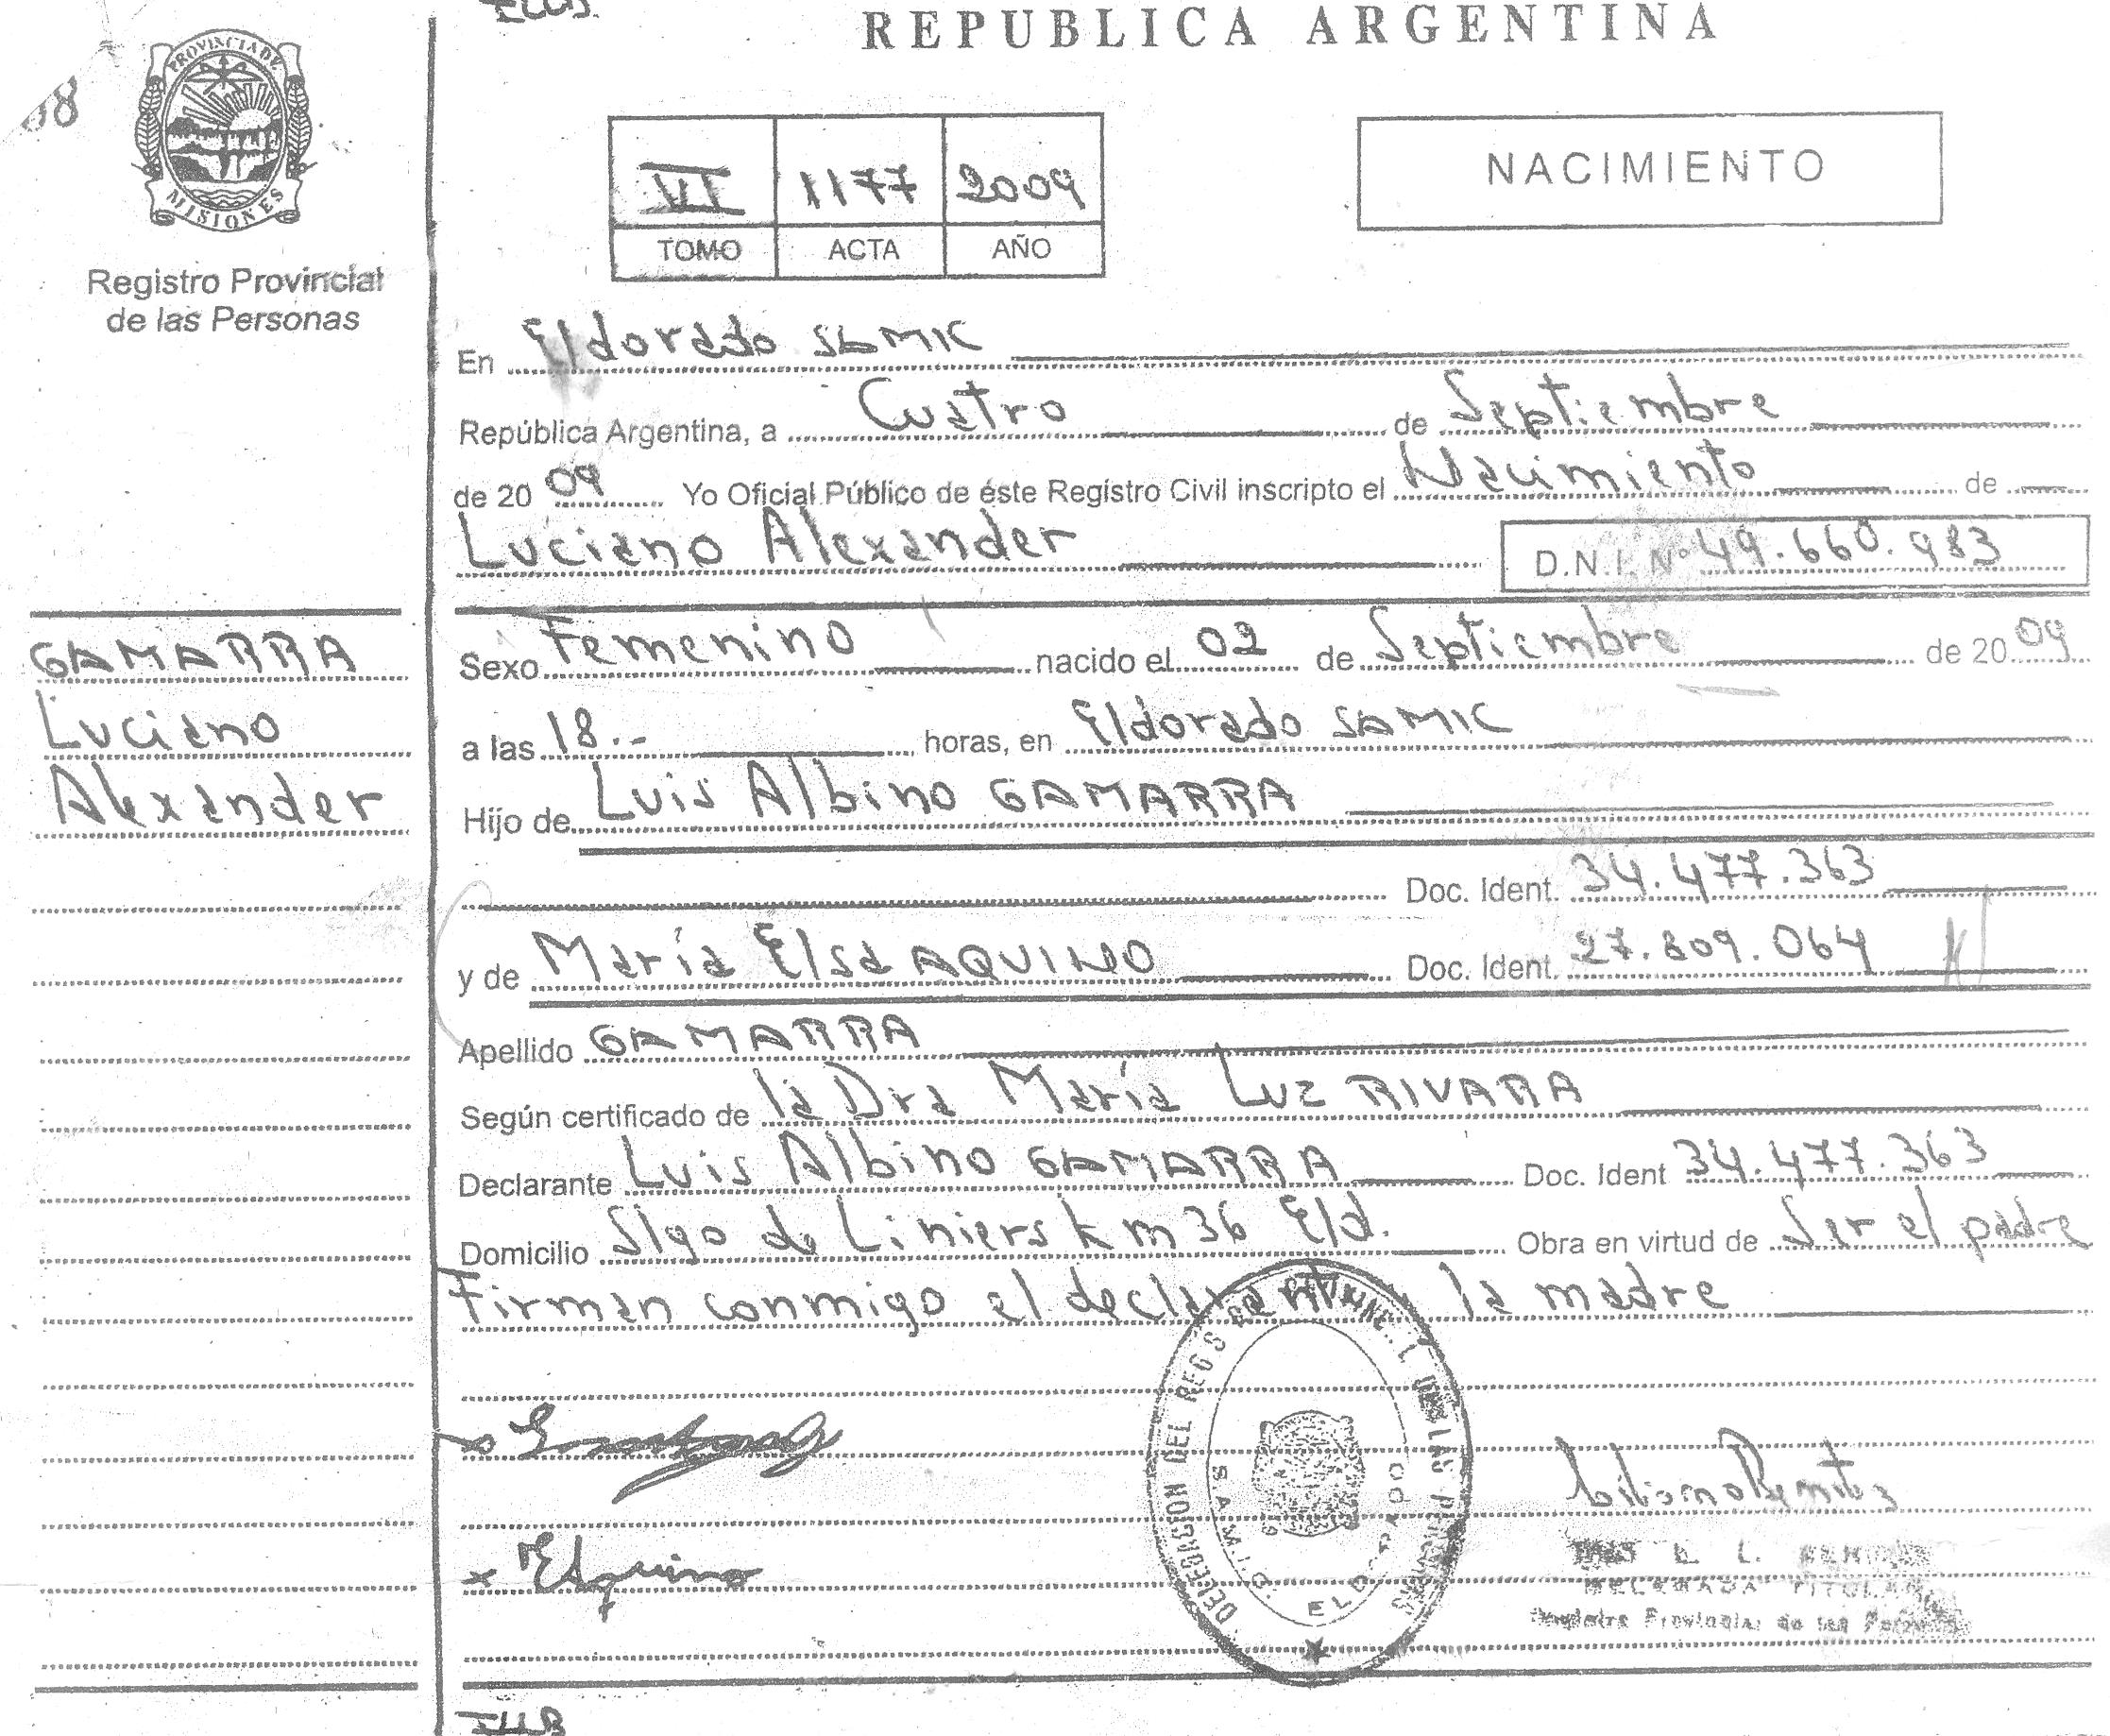 REPUBLICA ARGENTINA
PROVINCIA DE
MISIONES
Registro Provincial
de las Personas
VI 1177 2009
TOMO ACTA AÑO
NACIMIENTO
En Eldorado SAMIC
República Argentina, a Cuatro de Septiembre
de 20 09 Yo Oficial Público de éste Registro Civil inscripto el Nacimiento de
Luciano Alexander
D.N.I. Nº 49.660.983
GAMARRA
Luciano
Alexander
Sexo Femenino nacido el 02 de Septiembre de 20 09
a las 18.- horas, en Eldorado SAMIC
Hijo de Luis Albino GAMARRA
Doc. Ident. 34.477.363
y de María Elsa AQUINO Doc. Ident. 27.809.064
Apellido GAMARRA
Según certificado de la Dra María Luz RIVARA
Declarante Luis Albino GAMARRA Doc. Ident 34.477.363
Domicilio Sgo de Liniers km 36 Eld. Obra en virtud de Ser el padre
Firman conmigo el declarante y la madre
DEL LAS
S.A.M.I.C. ELDORADO
DELEGADA TITULAR
Registro Provincial de las Personas